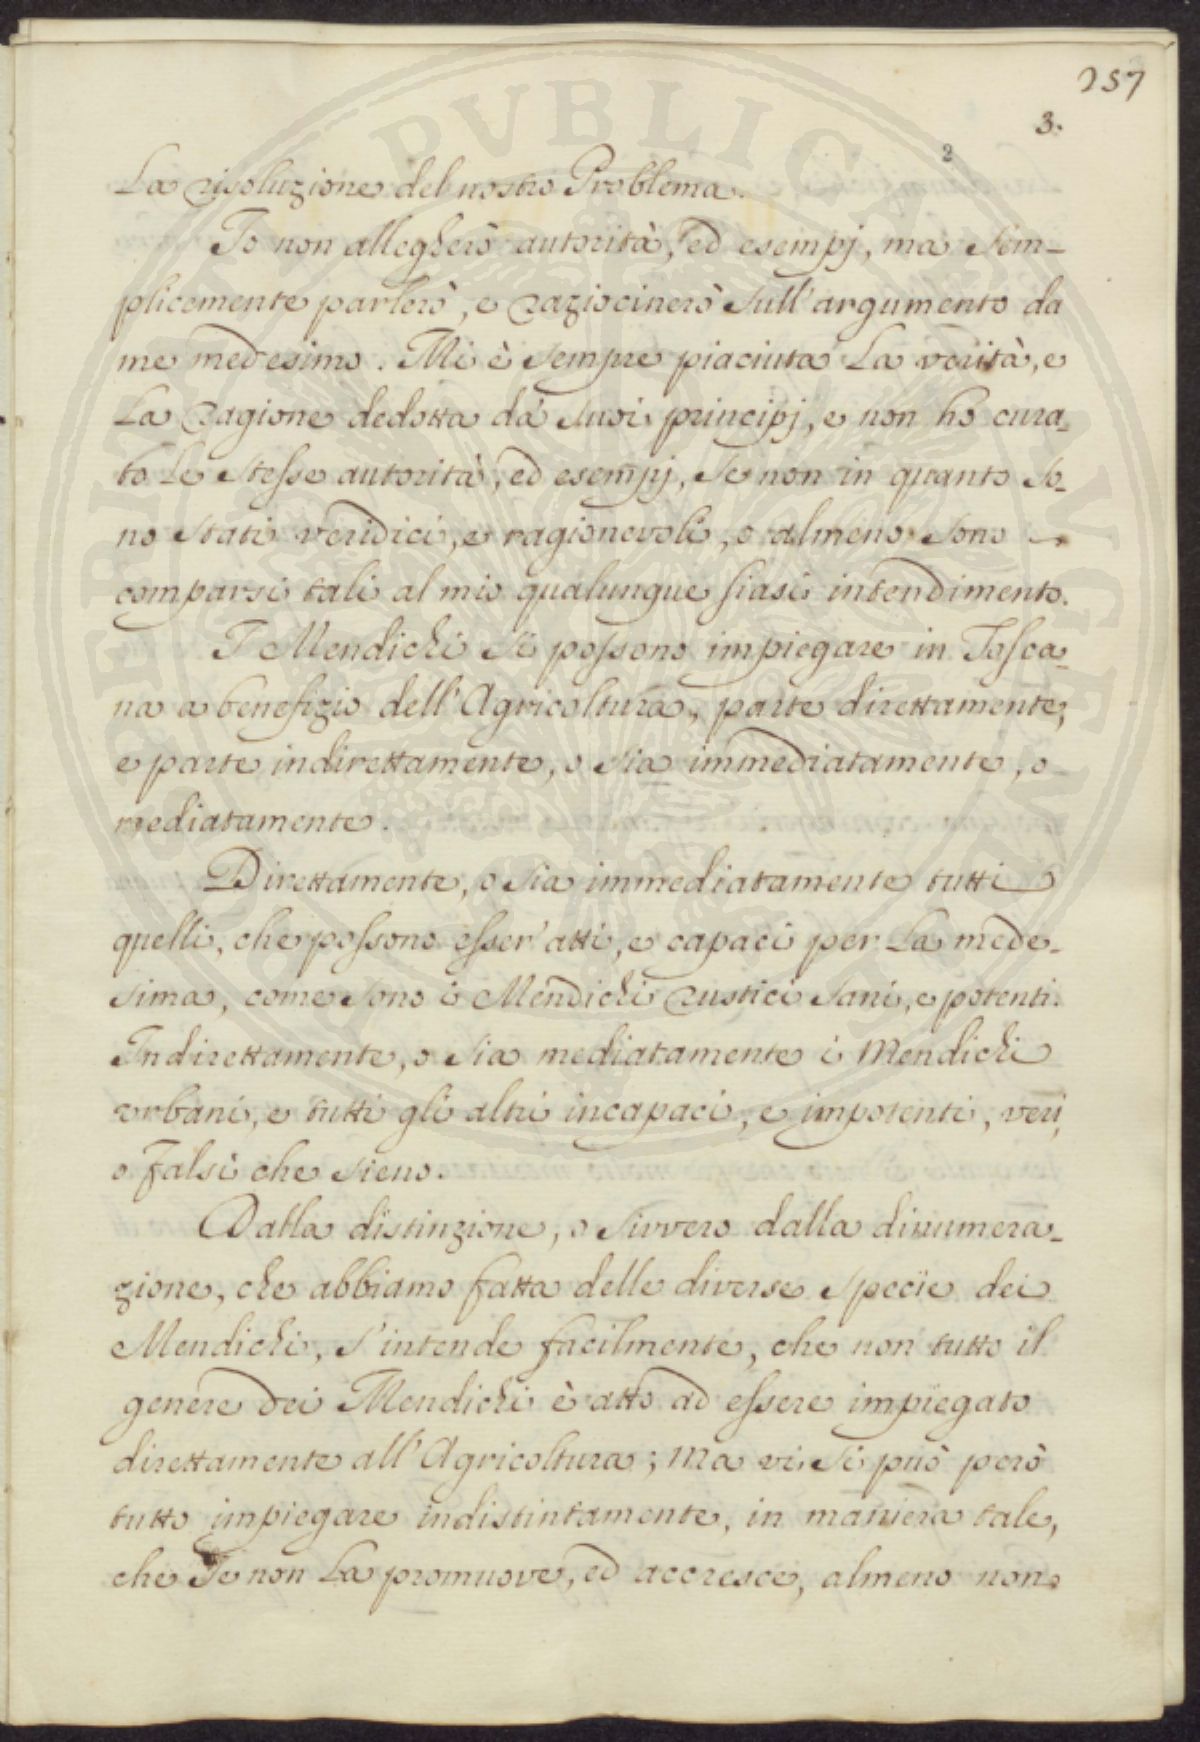 257
3.
2
La risoluzione del nostro Problema.
Io non allegherò autorità, ed esempj, ma sem-
plicemente parlerò, e raziocinerò sull'argumento da
me medesimo. Mi è sempre piaciuta la verità, e
la ragione dedotta da suoi principj, e non ho cura-
to le stesse autorità, ed esempj, se non in quanto so-
no stati veridici, e ragionevoli, o almeno sono
comparsi tali al mio qualunque siasi intendimento.
I Mendichi si possono impiegare in Tosca-
na a benefizio dell'Agricoltura, parte direttamente,
e parte indirettamente, o sia immediatamente, o
mediatamente.
Direttamente, o sia immediatamente tutti
quelli, che possono esser'atti, e capaci per la mede-
sima, come sono i Mendichi rustici sani, e potenti.
Indirettamente, o sia mediatamente i Mendichi
urbani, e tutti gli altri incapaci, e impotenti, veri,
o falsi che sieno.
Dalla distinzione, o sivvero dalla dinumera-
zione, che abbiamo fatta delle diverse specie dei
Mendichi, s'intende facilmente, che non tutto il
genere dei Mendichi è atto ad essere impiegato
direttamente all'Agricoltura; ma vi si può però
tutto impiegare indistintamente, in maniera tale,
che se non la promuove, ed accresce, almeno non